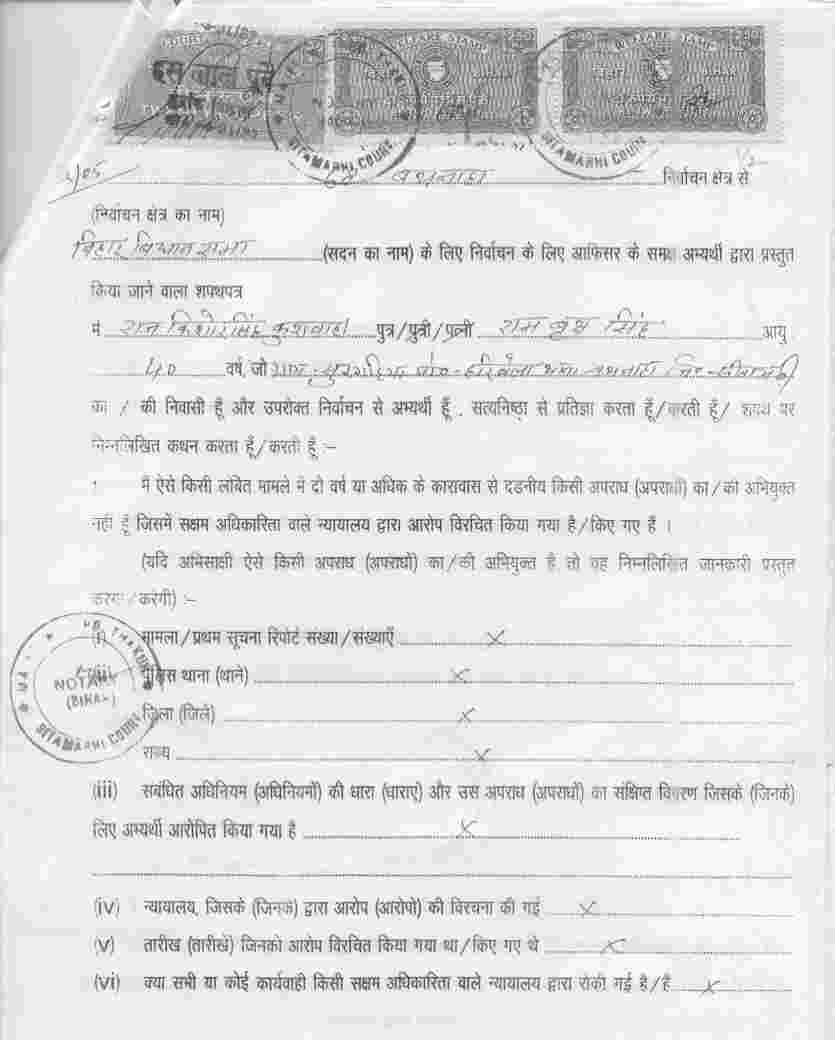 WELFARE STAMP
WELFARE STAMP
बिहार
बिहार
SITAMARHI COURT
SITAMARHI COURT
बथनाहा निर्वाचन क्षेत्र से
(निर्वाचन क्षेत्र का नाम)
बिहार विधान सभा (सदन का नाम) के लिए निर्वाचन के लिए आफिसर के समक्ष अभ्यर्थी द्वारा प्रस्तुत
किया जाने वाला शपथपत्र
मैं राज किशोर सिंह कुशवाहा पुत्र/पुत्री/पत्नी राम वृक्ष सिंह आयु
40 वर्ष, जो ग्राम
का / की निवासी हूँ और उपरोक्त निर्वाचन से अभ्यर्थी हूँ , सत्यनिष्ठा से प्रतिज्ञा करता हूँ/करती हूँ/ शपथ पर
निम्नलिखित कथन करता हूँ/करती हूँ :-
मैं ऐसे किसी लंबित मामले में दो वर्ष या अधिक के कारावास से दंडनीय किसी अपराध (अपराधों) का/की अभियुक्त
नहीं हूँ जिसमें सक्षम अधिकारिता वाले न्यायालय द्वारा आरोप विरचित किया गया है/किए गए हैं ।
(यदि अभिसाक्षी ऐसे किसी अपराध (अपराधों) का/की अभियुक्त है तो वह निम्नलिखित जानकारी प्रस्तुत
करेगा/करेगी) :-
(i) मामला/प्रथम सूचना रिपोर्ट संख्या/संख्याएँ X
(ii) पुलिस थाना (थाने) X
जिला (जिले) X
राज्य X
THAKUR
NOTARY
(BIHAR)
SITAMARHI COURT
(iii) संबंधित अधिनियम (अधिनियमों) की धारा (धाराएं) और उस अपराध (अपराधों) का संक्षिप्त विवरण जिसके (जिनके)
लिए अभ्यर्थी आरोपित किया गया है X
(iv) न्यायालय, जिसके (जिनके) द्वारा आरोप (आरोपों) की विरचना की गई X
(v) तारीख (तारीखें) जिनको आरोप विरचित किया गया था/किए गए थे X
(vi) क्या सभी या कोई कार्यवाही किसी सक्षम अधिकारिता वाले न्यायालय द्वारा रोकी गई है/हैं X